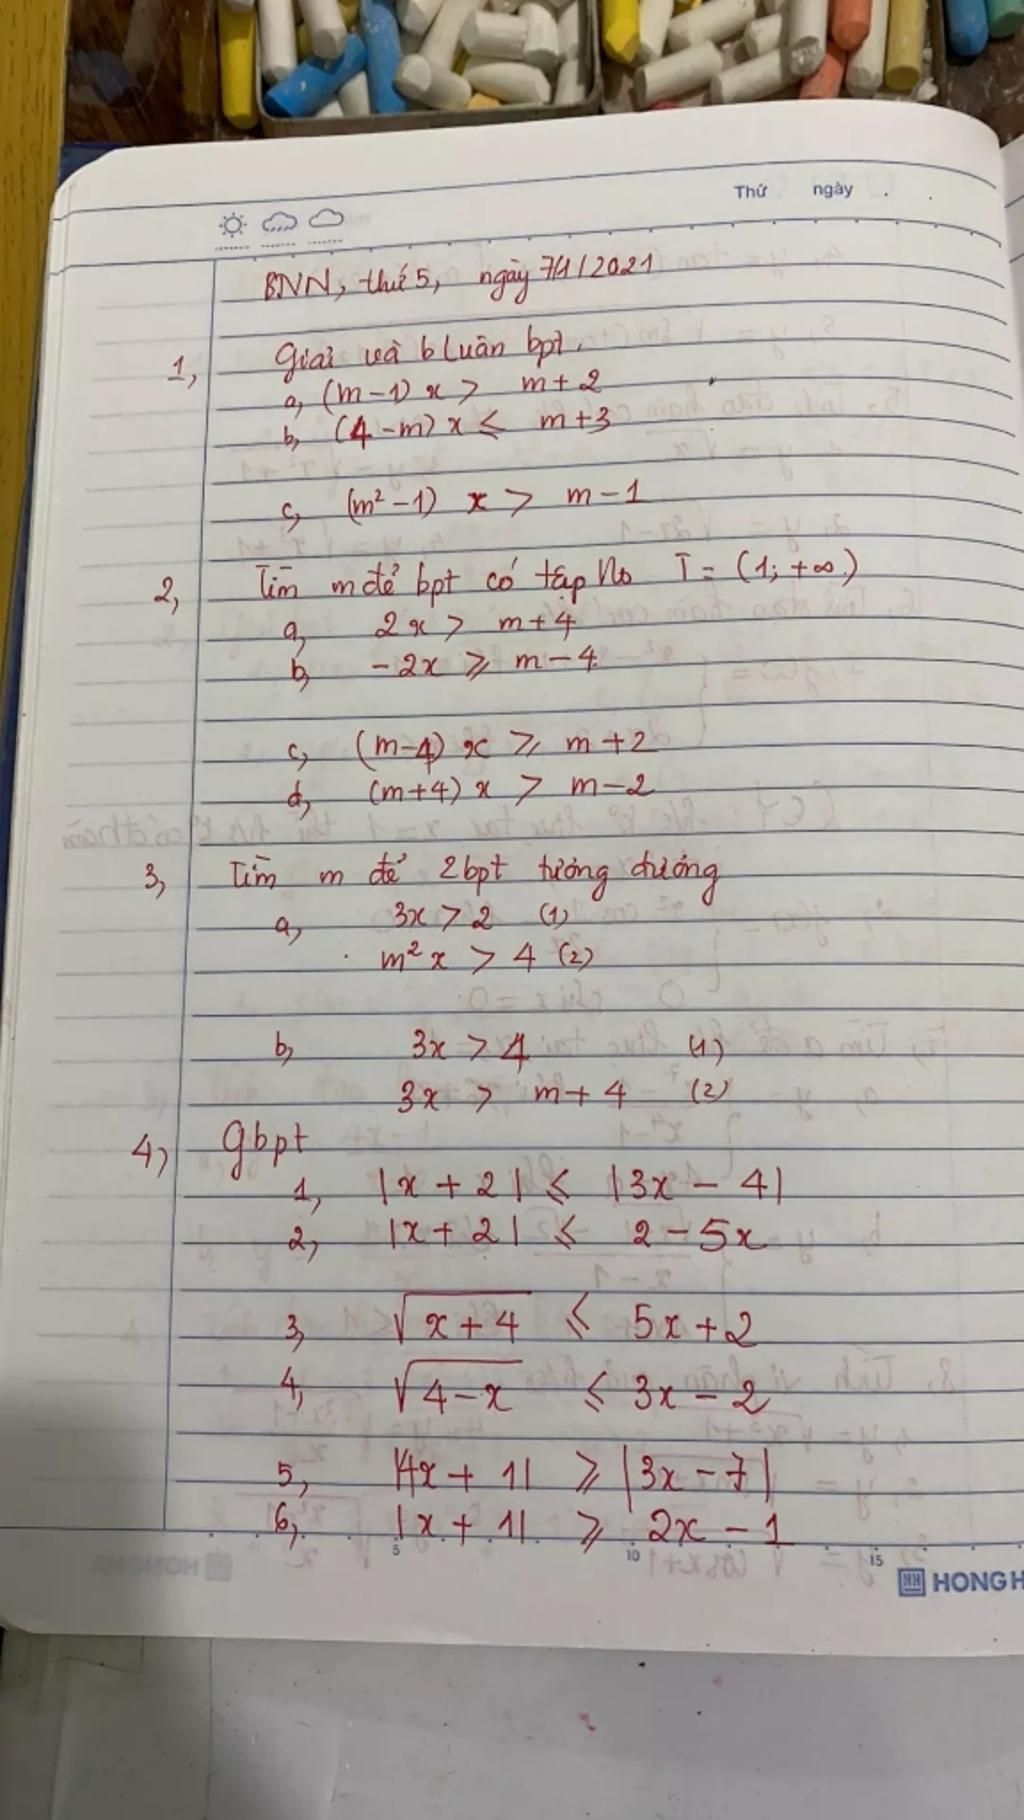 Thứ ngày
BNN, thứ 5, ngày 7/1/2021
1, Giải và b luận bpt.
a, (m-1) x > m+2
b, (4-m) x ≤ m+3
c, (m²-1) x > m-1
2, Tìm m để bpt có tập No T = (1; +∞)
a, 2x > m+4
b, -2x ≥ m-4
c, (m-4) x ≥ m+2
d, (m+4) x > m-2
3, Tìm m để 2bpt tương đương
a, 3x > 2 (1)
m²x > 4 (2)
b, 3x > 4 (1)
3x > m+4 (2)
4, Gbpt
1, |x+2| ≤ |3x-4|
2, |x+2| ≤ 2-5x
3, √(x+4) ≤ 5x+2
4, √(4-x) ≤ 3x-2
5, |4x+1| ≥ |3x-7|
6, |x+1| ≥ 2x-1
5 10 15
HH HONG H